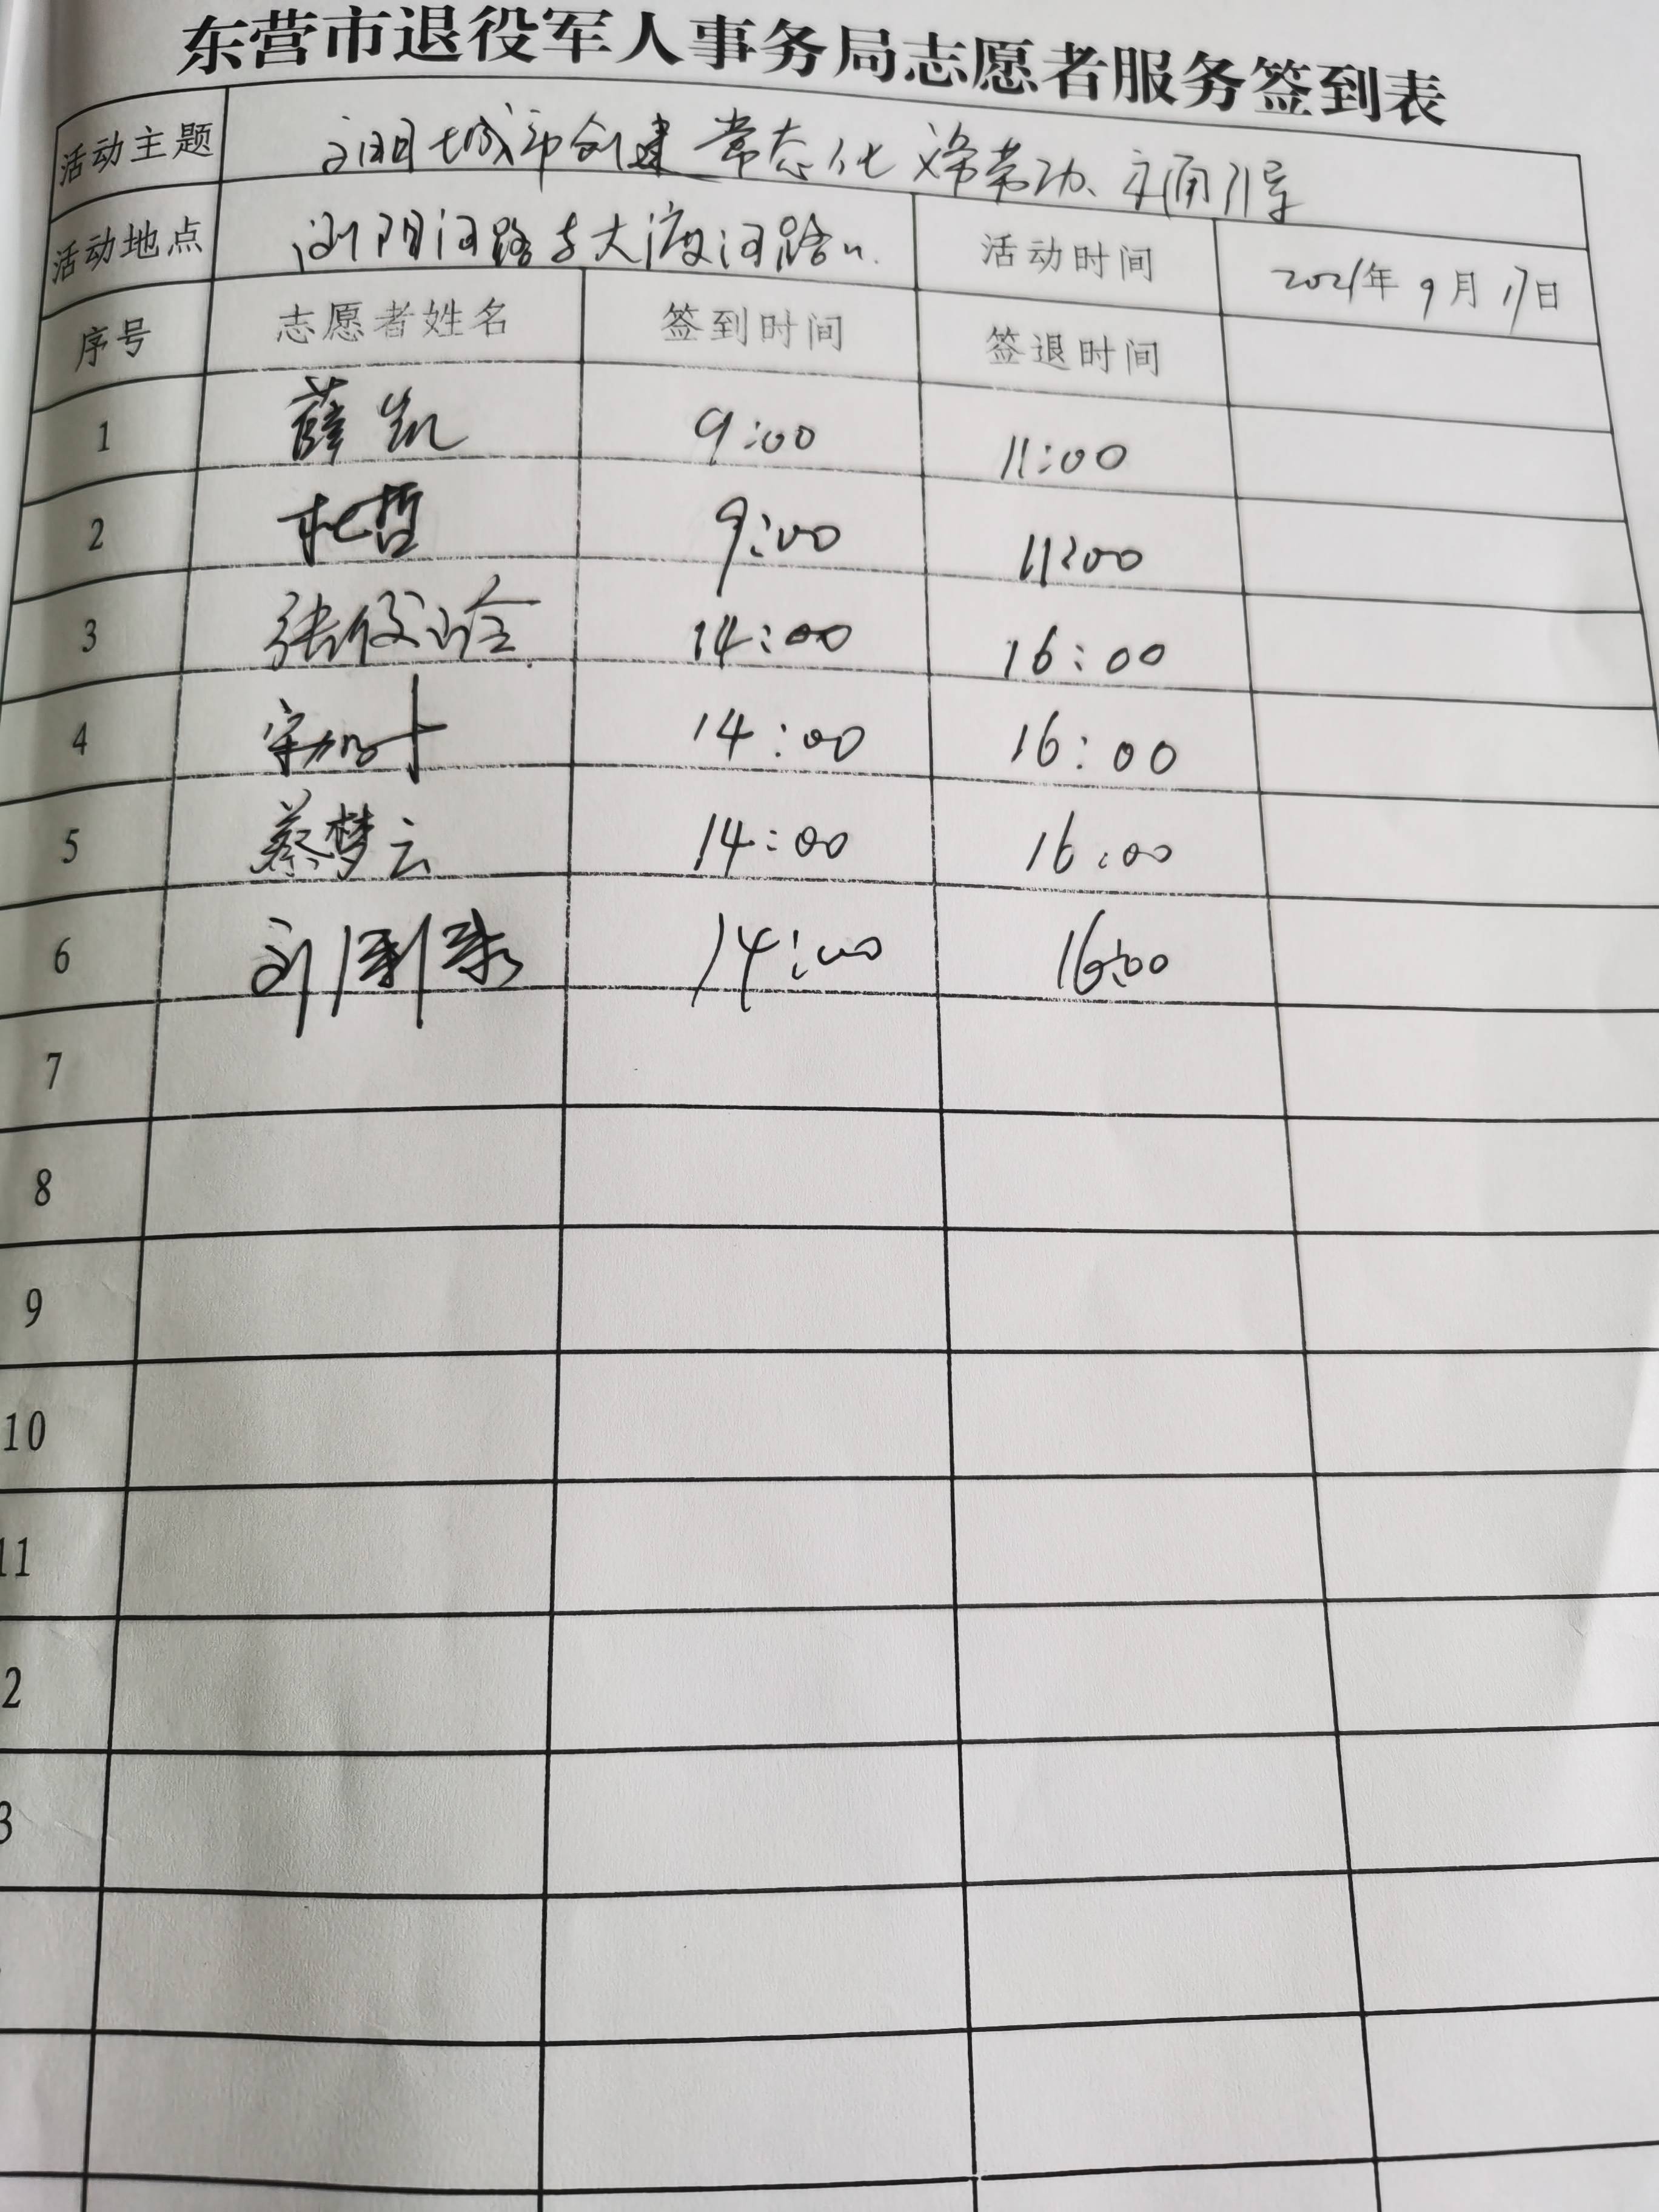 东营市退役军人事务局志愿者服务签到表
活动主题 文明城市创建常态化 义务劳动、交通引导
活动地点 浏阳河路与大渡河路 活动时间 2021年9月17日
序号 志愿者姓名 签到时间 签退时间
1 薛凯 9:00 11:00
2 杜哲 9:00 11:00
3 张俊 14:00 16:00
4 14:00 16:00
5 蔡梦云 14:00 16:00
6 刘 14:00 16:00
7
8
9
10
11
2
3